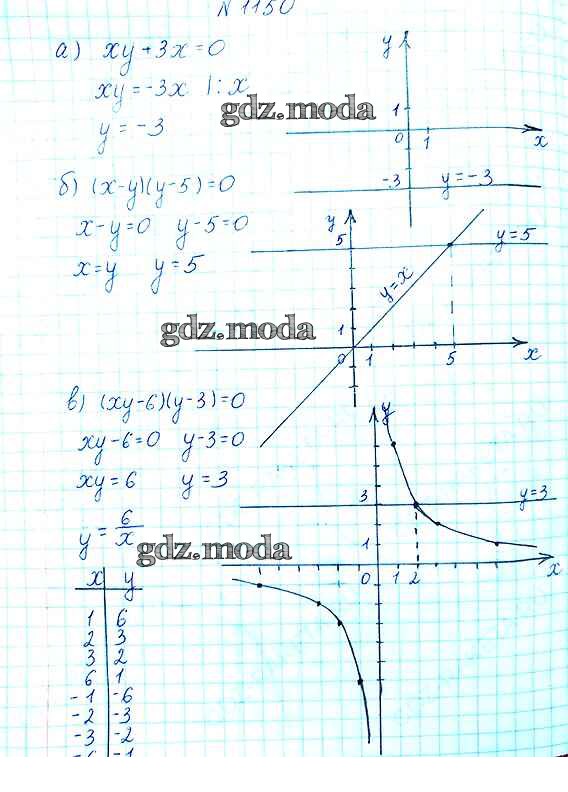 N 1150
а) xy + 3x = 0
xy = -3x |: x
y = -3
gdz.moda
y
1
0 1 x
-3 y = -3
б) (x-y)(y-5)=0
x-y=0 y-5=0
x=y y=5
y
5 y=5
y=x
1
0 1 5 x
gdz.moda
в) (xy-6)(y-3)=0
xy-6=0 y-3=0
xy=6 y=3
y = 6/x
gdz.moda
y
3 y=3
1
0 1 2 x
x y
1 6
2 3
3 2
6 1
-1 -6
-2 -3
-3 -2
-6 -1